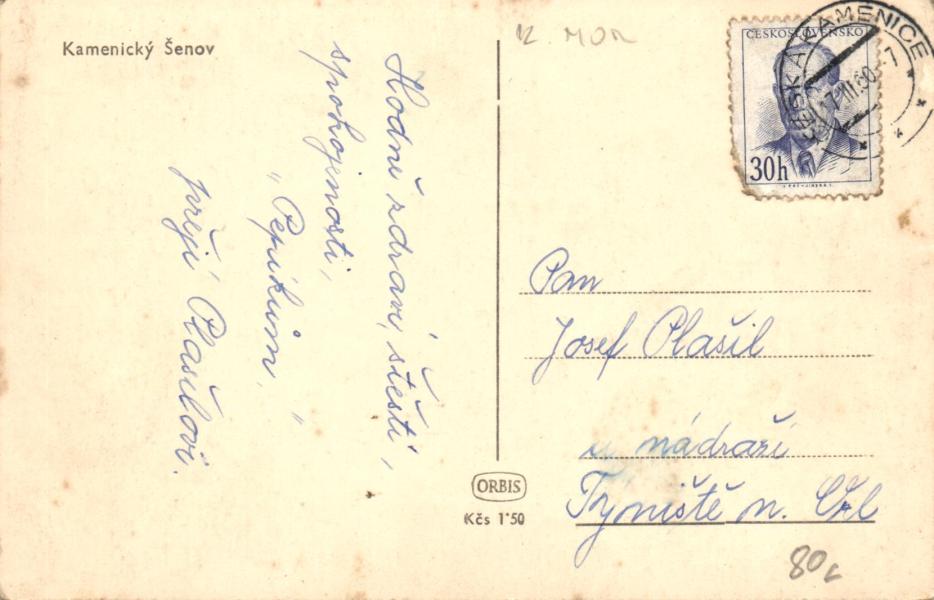 Kamenický Šenov
Hodně zdraví, štěstí,
spokojenosti,
„Pepíkům"
přejí Plašilovi.
K. MOR
ČESKOSLOVENSKO
30h
ČESKÁ KAMENICE
17.III.60.-7
Pan
Josef Plašil
u nádraží
Týniště n. Orl
ORBIS
Kčs 1·50
80,-